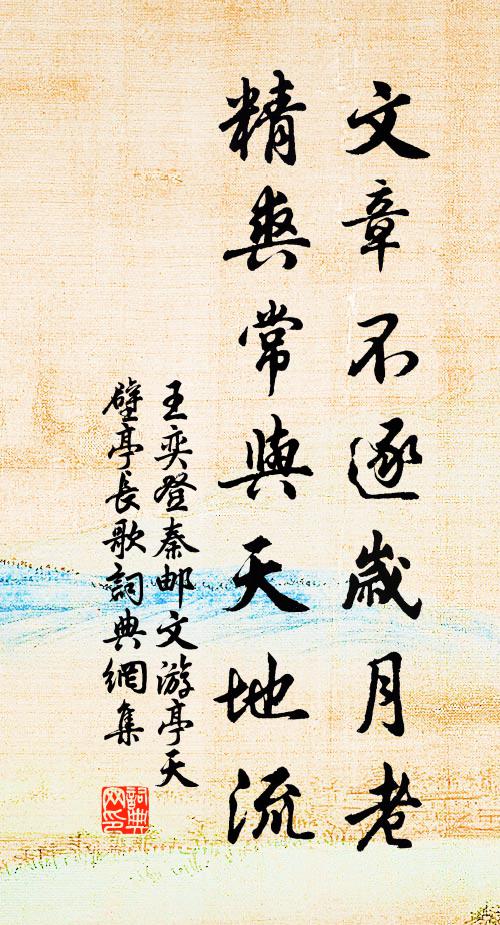 文章不逐歲月老
精爽常與天地流
王奕登秦郵文游亭天
壁亭長歌詞典網集
詞典网印